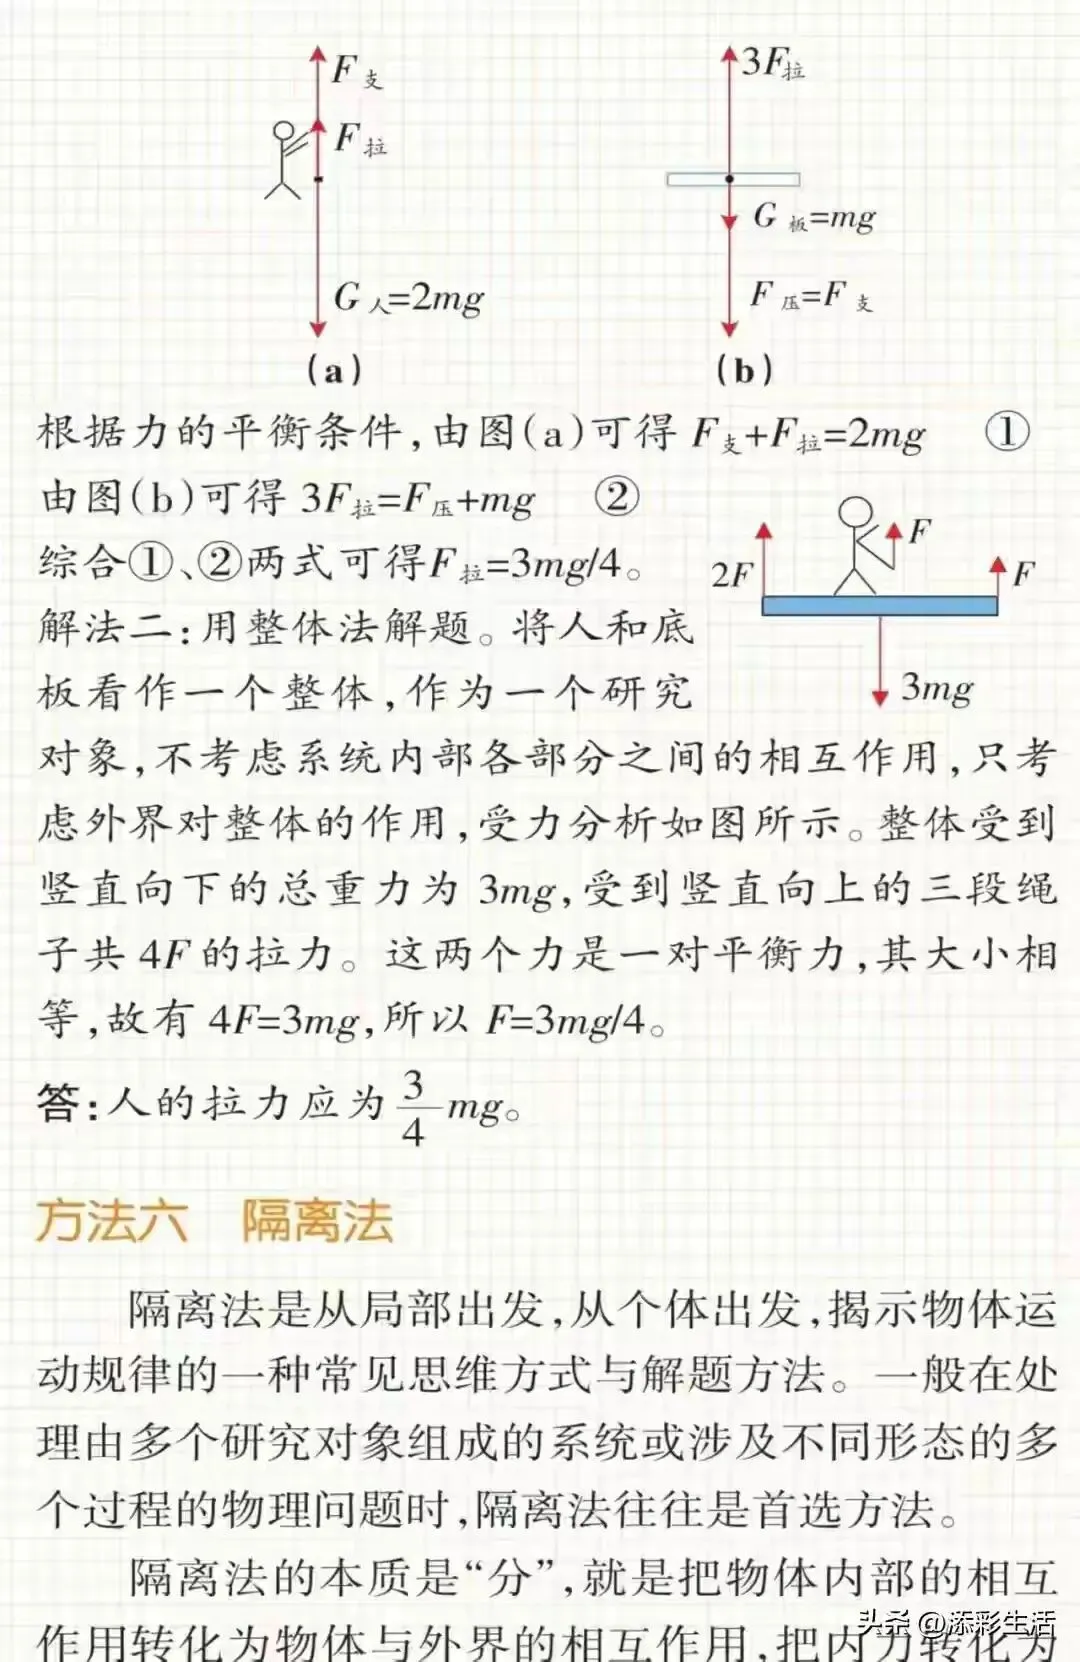 F支
F拉
G人=2mg
(a)
3F拉
G板=mg
F压=F支
(b)
根据力的平衡条件,由图(a)可得 F支+F拉=2mg ①
由图(b)可得 3F拉=F压+mg ②
综合①、②两式可得F拉=3mg/4。
2F
F
F
3mg
解法二:用整体法解题。将人和底
板看作一个整体,作为一个研究
对象,不考虑系统内部各部分之间的相互作用,只考
虑外界对整体的作用,受力分析如图所示。整体受到
竖直向下的总重力为 3mg,受到竖直向上的三段绳
子共 4F 的拉力。这两个力是一对平衡力,其大小相
等,故有 4F=3mg,所以 F=3mg/4。
答:人的拉力应为 3/4 mg。
方法六 隔离法
隔离法是从局部出发,从个体出发,揭示物体运
动规律的一种常见思维方式与解题方法。一般在处
理由多个研究对象组成的系统或涉及不同形态的多
个过程的物理问题时,隔离法往往是首选方法。
隔离法的本质是“分”,就是把物体内部的相互
作用转化为物体与外界的相互作用,把内力转化为
头条 @添彩生活